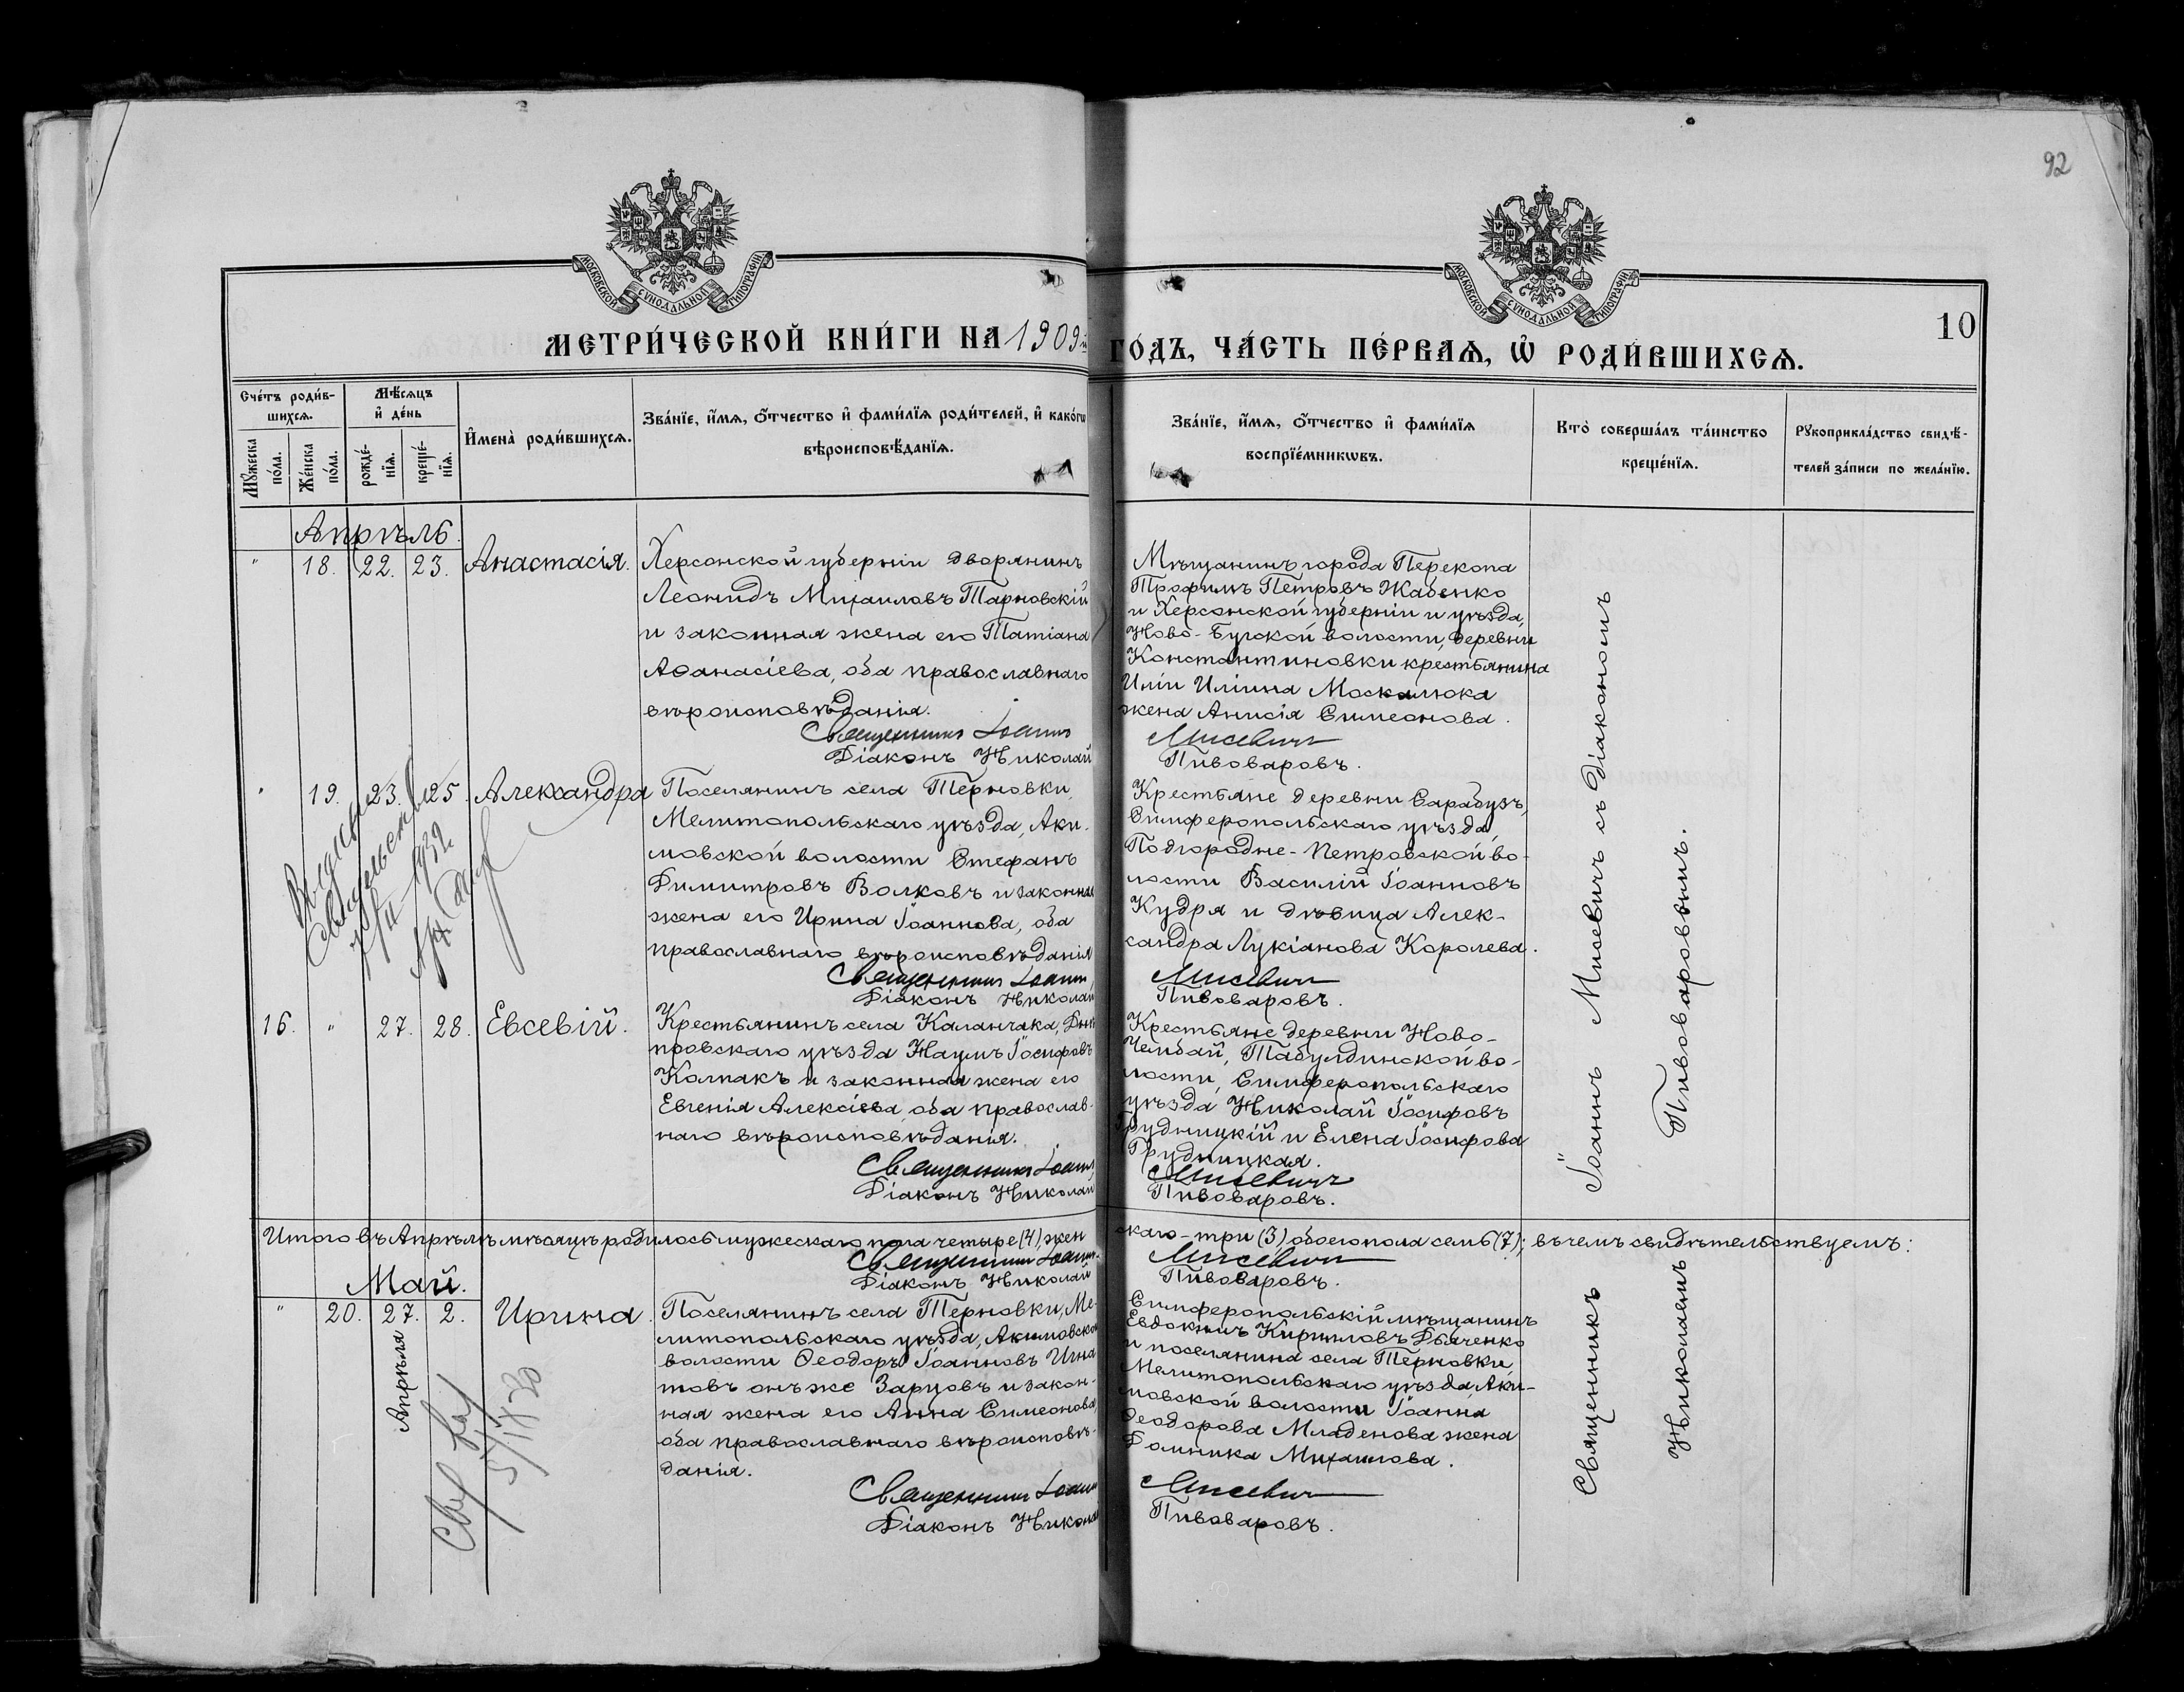 92
МОСКОВСКОЙ СѴНОДАЛЬНОЙ ТИПОГРАФІИ
МОСКОВСКОЙ СѴНОДАЛЬНОЙ ТИПОГРАФІИ
10
МЕТРИ́ЧЕСКОЙ КНИ́ГИ НА 1909й ГО́ДЪ, ЧА́СТЬ ПЕ́РВАѦ, Ѡ҆ РОДИ́ВШИХСѦ.
Сче́тъ роди́в-
шихсѧ.
Мꙋ́жеска по́ла.
Же́нска по́ла.
Мѣ́сѧцъ
и҆ де́нь
рожде́-
нїѧ.
креще́-
нїѧ.
И҆мена̀ роди́вшихсѧ.
Зва́нїе, и҆́мѧ, ѻ҆́тчество и҆ фами́лїѧ роди́телей, и҆ како́гѡ
вѣроисповѣ́данїѧ.
Зва́нїе, и҆́мѧ, ѻ҆́тчество и҆ фами́лїѧ
воспрїе́мникѡвъ.
Кто̀ соверша́лъ та́инство
креще́нїѧ.
Рꙋкоприкла́дство свидѣ́-
телей за́писи по жела́нїю.
Апрѣль.
" 18. 22. 23. Анастасія.
Херсонской губерніи дворянинъ
Леонидъ Михаиловъ Тарновскій
и законная жена его Татіана
Аѳанасіева, оба православнаго
вѣроисповѣданія.
Священникъ Іоаннъ
Діаконъ Николай
Мѣщанинъ города Перекопа
Трофимъ Петровъ Жабенко
и Херсонской губерніи и уѣзда,
Ново-Бугской волости, деревни
Константиновки крестьянина
Иліи Иліина Москалюка
жена Анисія Симеонова.
Мисевичъ
Пивоваровъ.
" 19. 23. 25. Александра
Поселянинъ села Терновки,
Мелитопольскаго уѣзда, Аки-
мовской волости Стефанъ
Димитровъ Волковъ и законная
жена его Ирина Іоаннова, оба
православнаго вѣроисповѣданія
Священникъ Іоаннъ
Діаконъ Николай
Крестьяне деревни Сарабузъ,
Симферопольскаго уѣзда,
Подгородне-Петровской во-
лости Василій Іоанновъ
Кудря и дѣвица Алек-
сандра Лукіанова Королева.
Мисевичъ
Пивоваровъ.
1932
16. " 27. 28. Евсевій.
Крестьянинъ села Каланчака, Днѣ-
провскаго уѣзда Наумъ Іосифовъ
Колпакъ и законная жена его
Евгенія Алексіева, оба православ-
наго вѣроисповѣданія.
Священникъ Іоаннъ
Діаконъ Николай
Крестьяне деревни Ново-
Челбай, Табулдинской во-
лости, Симферопольскаго
уѣзда Николай Іосифовъ
Грудницкій и Елена Іосифова
Грудницкая.
Мисевичъ
Пивоваровъ.
Іоаннъ Мисевичъ съ діакономъ
Пивоваровымъ.
Итого въ Апрѣлѣ мѣсяцѣ родилось мужескаго пола четыре (4), жен
скаго - три (3) обоего пола семь (7); въ чемъ свидѣтельствуемъ:
Священникъ Іоаннъ
Діаконъ Николай
Мисевичъ
Пивоваровъ.
Май.
" 20. 27. 2. Ирина.
Апрѣля
5/IX-30
Поселянинъ села Терновки, Ме-
литопольскаго уѣзда, Акимовской
волости Ѳеодоръ Іоанновъ Игна
товъ онъ же Зарцовъ и закон-
ная жена его Анна Симеонова,
оба православнаго вѣроисповѣ-
данія.
Священникъ Іоаннъ
Діаконъ Николай
Симферопольскій мѣщанинъ
Евдокимъ Кирилловъ Дьяченко
и поселянина села Терновки,
Мелитопольскаго уѣзда, Аки-
мовской волости Іоанна
Ѳеодорова Младенова жена
Домника Михаилова.
Мисевичъ
Пивоваровъ.
Священникъ
Николаемъ